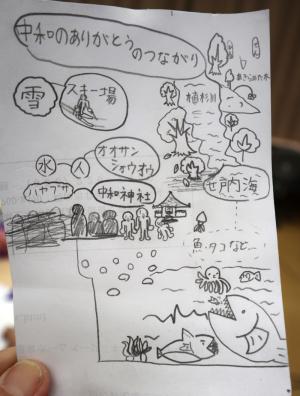 中和のありがとう
のつながり
雪
スキー場
植杉川
水
人
オオサン
ショウオウ
ハヤブサ
中和神社
瀬戸内海
魚、タコなど…